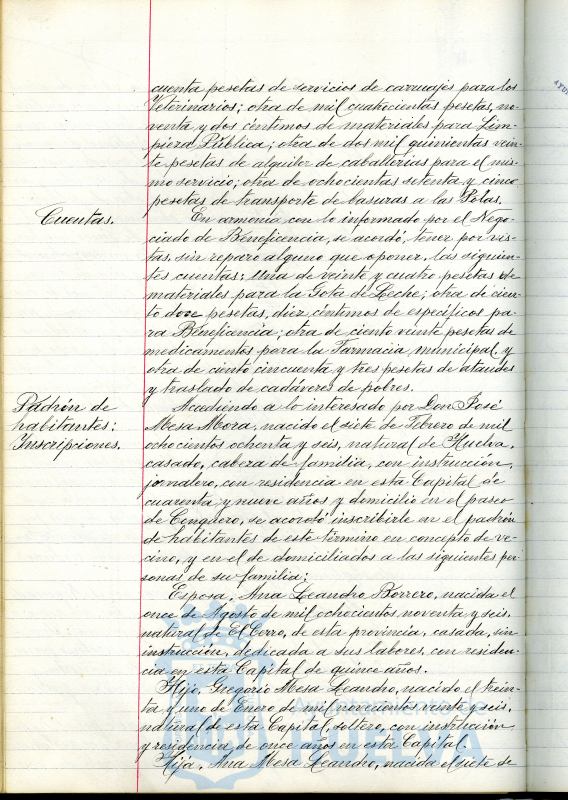 cuenta pesetas de servicios de carruajes para los
Veterinarios; otra de mil cuatrocientas pesetas, no-
venta y dos céntimos de materiales para Lim-
pieza Pública; otra de dos mil quinientas vein-
te pesetas de alquiler de caballerías para el mis-
mo servicio; otra de ochocientas setenta y cinco
pesetas de transporte de basuras a las Polas.
Cuentas.
En armonía con lo informado por el Nego-
ciado de Beneficencia, se acordó, tener por vis-
tas, sin reparo alguno que oponer, las siguien-
tes cuentas: Una de veinte y cuatro pesetas de
materiales para la Gota de Leche; otra de cien-
to doce pesetas, diez céntimos de específicos pa-
ra Beneficencia; otra de ciento veinte pesetas de
medicamentos para la Farmacia municipal y
otra de ciento cincuenta y tres pesetas de ataudes
y traslado de cadáveres de pobres.
Padrón de
habitantes:
Inscripciones.
Accediendo a lo interesado por Don José
Mesa Mora, nacido el siete de Febrero de mil
ochocientos ochenta y seis, natural de Huelva,
casado, cabeza de familia, con instrucción,
jornalero, con residencia en esta Capital de
cuarenta y nueve años y domicilio en el paseo
de Conquero, se acordó inscribirle en el padrón
de habitantes de este término en concepto de ve-
cino, y en el de domiciliados a las siguientes per-
sonas de su familia:
Esposa, Ana Leandro Borrero, nacida el
once de Agosto de mil ochocientos noventa y seis,
natural de El Cerro, de esta provincia, casada, sin
instrucción, dedicada a sus labores, con residen-
cia en esta Capital de quince años.
Hijo, Gregorio Mesa Leandro, nacido el trein-
ta y uno de Enero de mil novecientos veinte y seis,
natural de esta Capital, soltero, con instrucción
y residencia de once años en esta Capital.
Hija, Ana Mesa Leandro, nacida el siete de
HUELVA